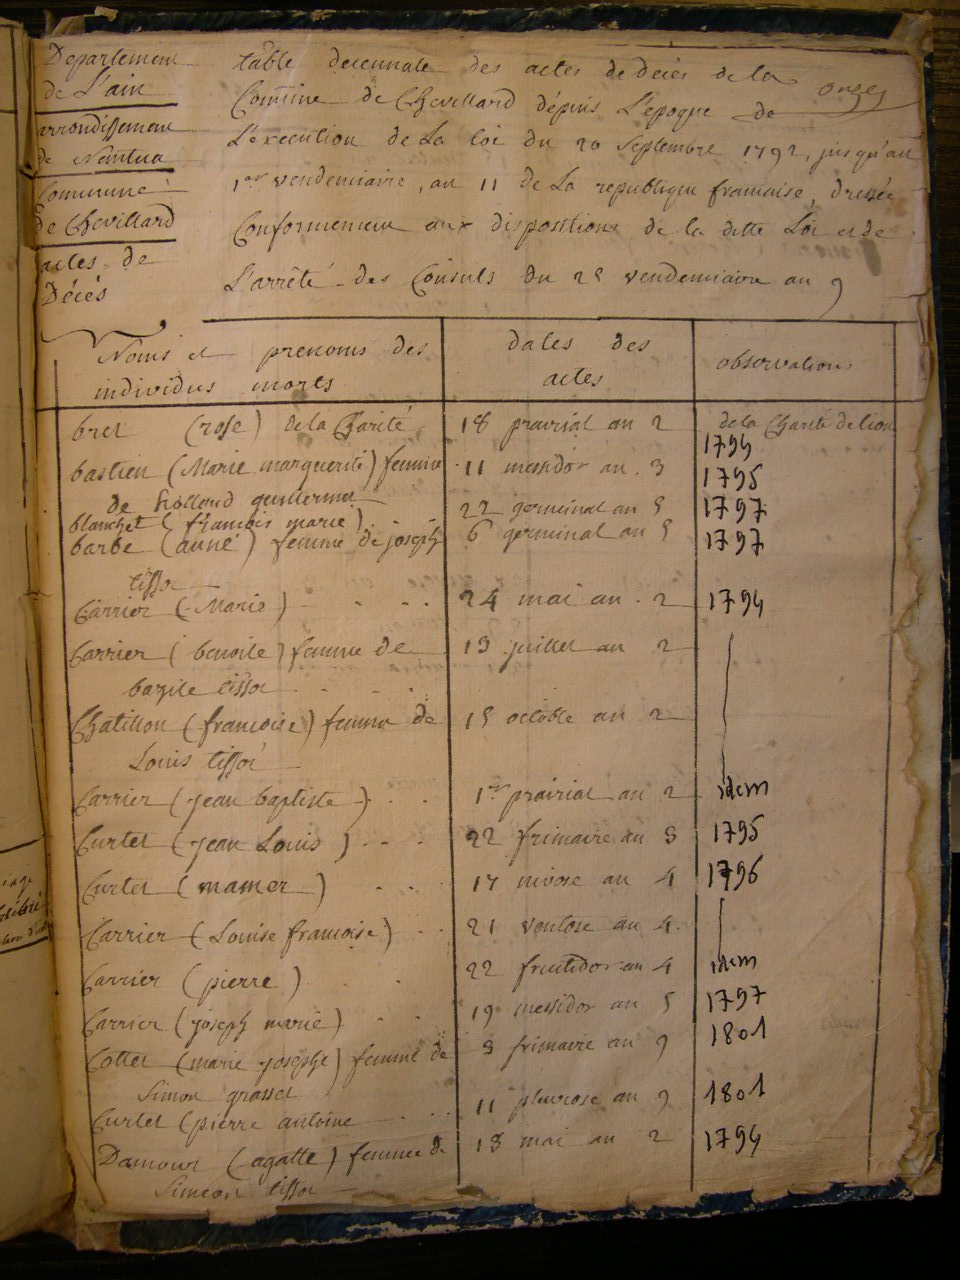 Departement
de L'ain
arrondissement
de Nantua
Commune
de Chevillard
actes de
Décés
table decennale des actes de decés de la
Commune de Chevillard dépuis L'époque de
L'éxecution de La loi du 20 Septembre 1792, jusqu'au
1er vendemiaire, an 11 de La republique francaise, dressée
Conformement aux dispositions de la ditte Loi et de
L'arrêté des Consuls du 25 vendemiaire an 9
Noms et prenoms des individus morts
dates des actes
observations
bret (rose) de la Charité 18 prairial an 2 de la Charité de lion
1794
bastien (Marie marguerite) femme 11 messidor an 3 1795
de hollond guillerme
blanchet (francois marie) 22 germinal an 5 1797
barbe (anne) femme de joseph 6 germinal an 5 1797
tissot
Carrier (Marie) 24 mai an 2 1794
Carrier (benoite) femme de 13 juillet an 2
bazile tissot
Chatillon (francoise) femme de 15 octobre an 2
Louis tissot
Carrier (jean baptiste) 1er prairial an 2 idem
Curtet (jean Louis) 22 frimaire an 3 1795
Curtet (mamer) 17 nivose an 4 1796
Carrier (Louise francoise) 21 ventose an 4
Carrier (pierre) 22 fructidor an 4 idem
Carrier (joseph marie) 19 messidor an 5 1797
Cottet (marie josephe) femme de 3 frimaire an 9 1801
Simon grasset
Curtet (pierre antoine 11 pluviose an 9 1801
Damour (agatte) femme de 18 mai an 2 1794
Simeon tissot